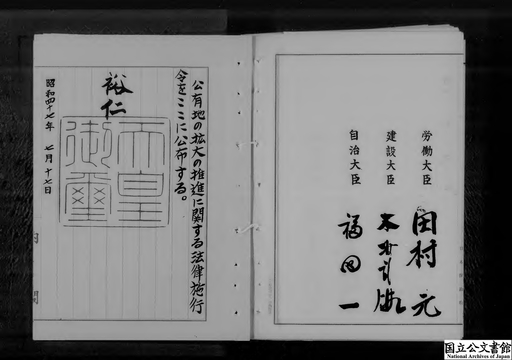 公有地の拡大の推進に関する法律施行
令をここに公布する。
裕仁
天皇
御璽
昭和四十七年 七月十七日
内閣
労働大臣 田村元
建設大臣 木村武雄
自治大臣 福田一
国立公文書館
National Archives of Japan